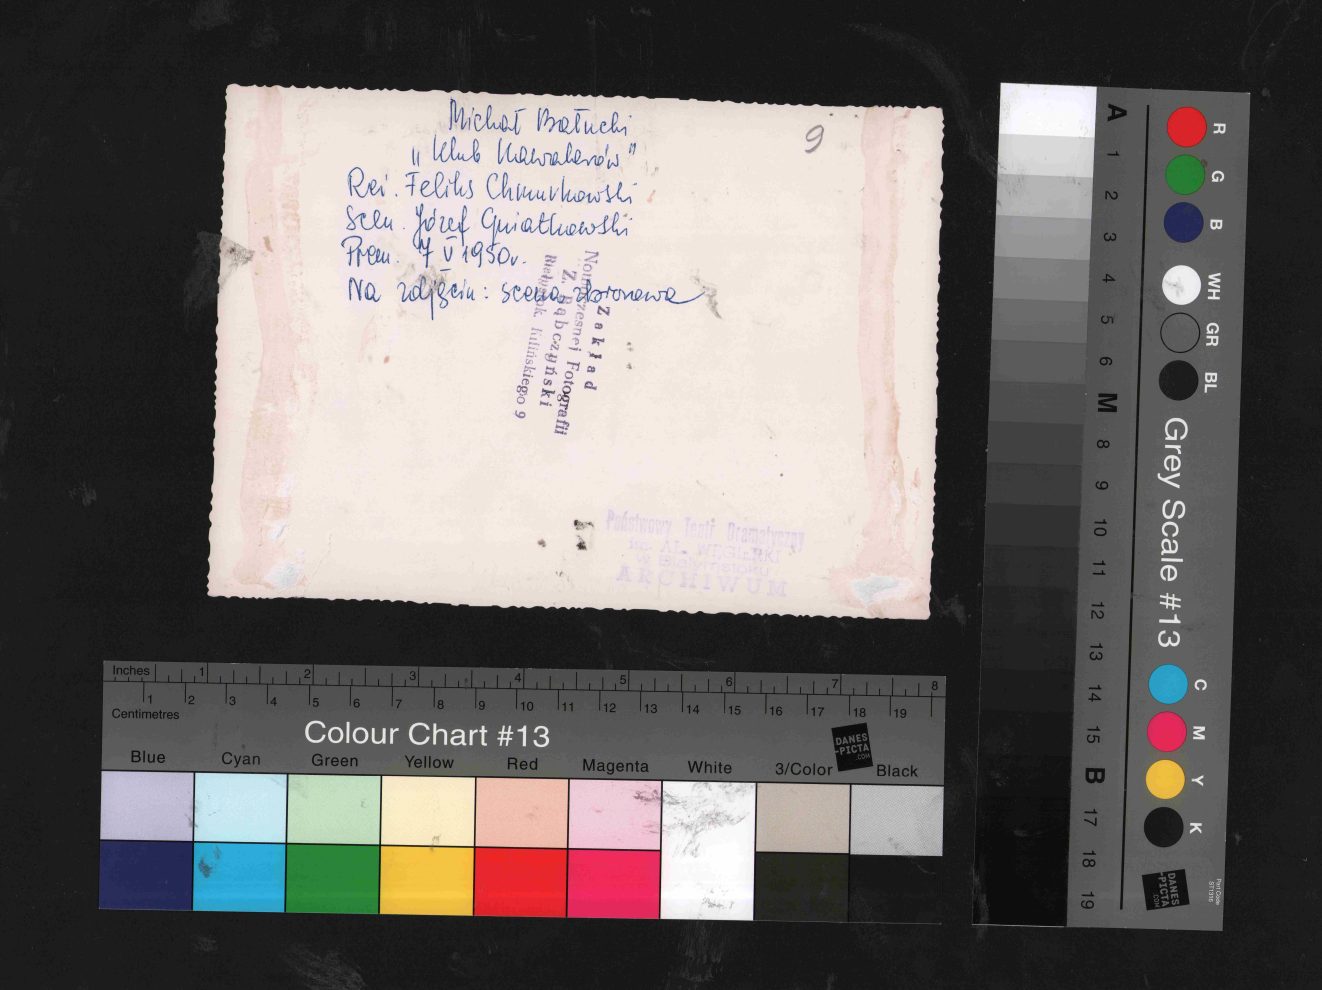 Michał Bałucki
„Klub Kawalerów”
Reż. Feliks Chmurkowski
Scen. Józef Gwiatkowski
Prem. 7 V 1950r.
Na zdjęciu: scena zbiorowa
9
Zakład
Nowoczesnej Fotografii
Z. Bąbczyński
Białystok, Kilińskiego 9
Państwowy Teatr Dramatyczny
im. AL. WĘGIERKI
w Białymstoku
ARCHIWUM
Inches 1 2 3 4 5 6 7 8
1 2 3 4 5 6 7 8 9 10 11 12 13 14 15 16 17 18 19
Centimetres
Colour Chart #13
DANES
-PICTA
.COM
Blue Cyan Green Yellow Red Magenta White 3/Color Black
A 1 2 3 4 5 6 M 8 9 10 11 12 13 14 15 B 17 18 19
R G B WH GR BL
Grey Scale #13
C M Y K
DANES
-PICTA
.COM
Part Code
ST1316